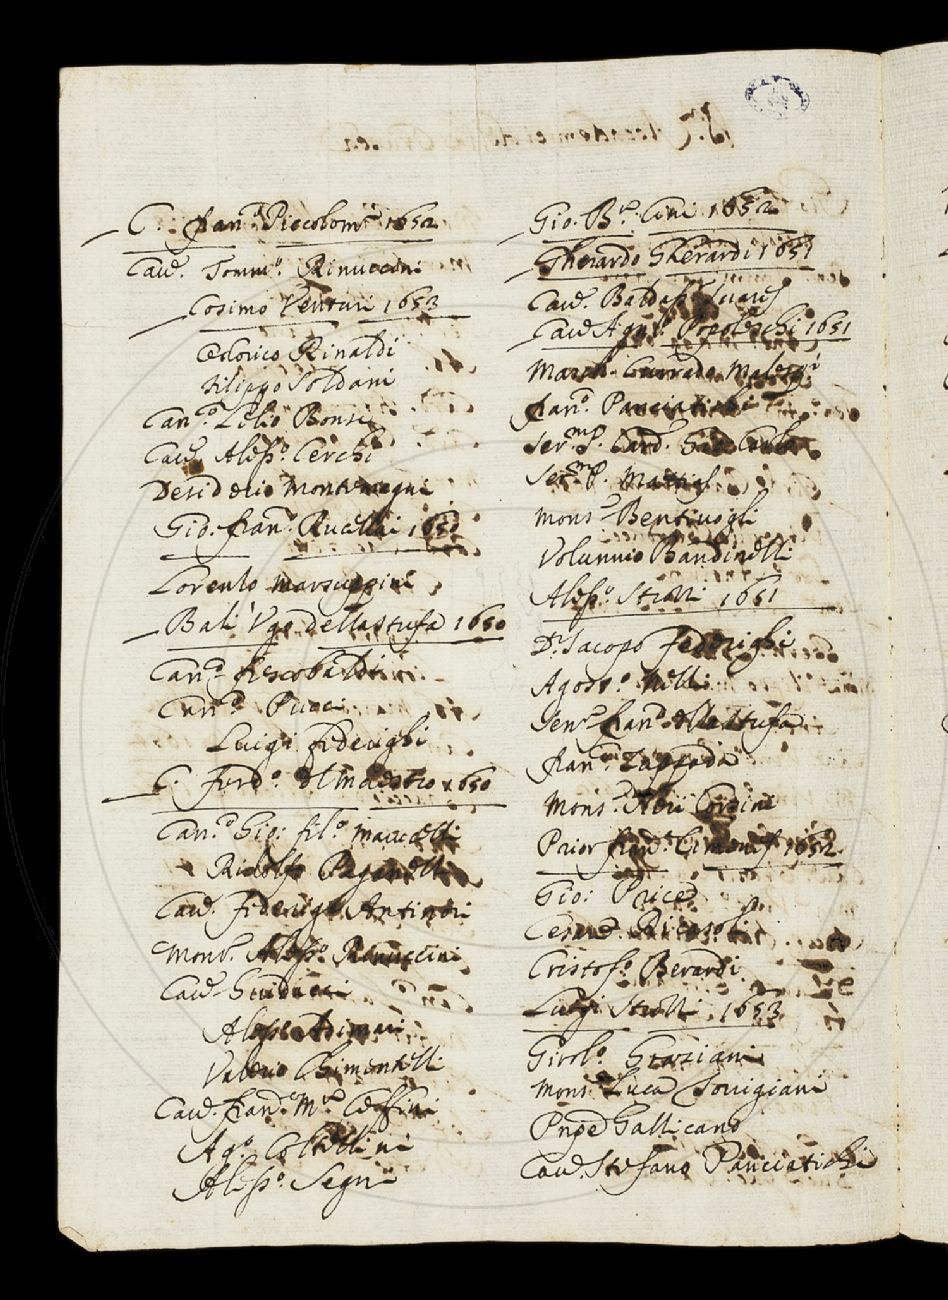 C. Fran.º Piccolom.ⁱ 1652
Cau.ʳ Tomm.º Rinuccini
Cosimo Venturi 1653
Rinaldi
Filippo Soldani
Can.º Lelio Bonsi
Cau.ʳ Aless.º Cerchi
Desiderio Montemagni
Gio. Fran.º Rucellai 1650
Lorenzo Marsuppini
Balì Vgo della Stufa 1650
Can.º Frescobaldi
Can.º Pucci
Luigi Federighi
C. Ferd.º del Maestro 1650
Can.º Gio: fil.º Marucelli
Ridolfo Paganelli
Cau.ʳ Federigo Antinori
Mons.ʳ Aless.º Rinuccini
Cau.ʳ Guiducci
Aless.º Adimari
Valerio Chimentelli
Cau.ʳ Fran.º M.ª Ceffini
Ag.º Coltellini
Aless.º Segni
Gio. B.ª Cini 1652
Gherardo Gherardi 1651
Cau.ʳ Baldass. Suares
Cau.ʳ Ag.º Popoleschi 1651
March. Currado Malespi
Fran.º Panciatichi
Ser.ᵐº P. Card. Gio. Carlo
Ser.ᵐº P. Mattias
Mons.ʳ Bentiuogli
Volunnio Bandinelli
Aless.º Strozzi 1651
D.ʳ Jacopo Federighi
Agost.º Nelli
Sen.ʳ Fran.º della Stufa
Fran.º Zuffada
Mons.ʳ Neri Corsini
Prior Fran.º Ximenes 1652
Gio: Price
Cesare Ricasoli
Cristof.º Berardi
Luigi Strozzi 1653
Girol.º Graziani
Mons.ʳ Luca Torrigiani
Pnpe Gallicano
Cau.ʳ Stefano Panciatichi